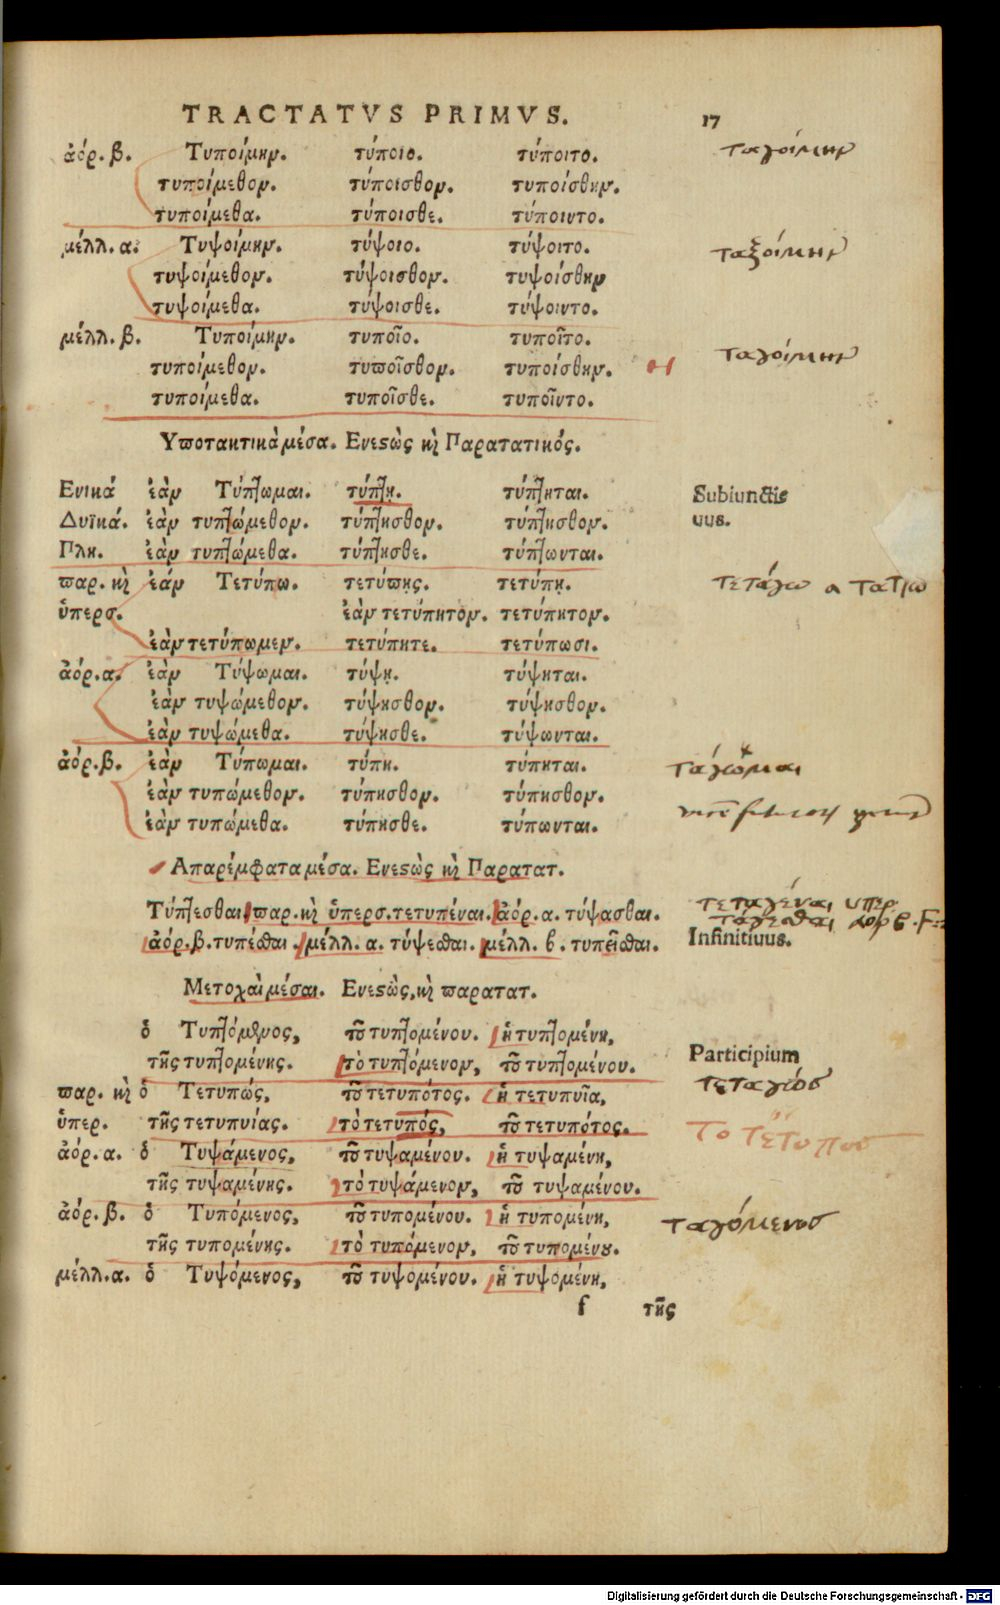 TRACTATVS PRIMVS. 17
ἀόρ. β. Τυποίμην. τύποιο. τύποιτο. ταγοίμην
τυποίμεθον. τύποισθον. τυποίσθην.
τυποίμεθα. τύποισθε. τύποιντο.
μέλλ. α. Τυψοίμην. τύψοιο. τύψοιτο. ταξοίμην
τυψοίμεθον. τύψοισθον. τυψοίσθην
τυψοίμεθα. τύψοισθε. τύψοιντο.
μέλλ. β. Τυποίμην. τυποῖο. τυποῖτο. ταγοίμην
τυποίμεθον. τυποῖσθον. τυποίσθην.
τυποίμεθα. τυποῖσθε. τυποῖντο.
Υποτακτικὰ μέσα. Ενεϛὼς κὴ Παρατατικός.
Ενικά ἐὰν Τύπτωμαι. τύπτῃ. τύπτηται. Subiuncti-
Δυϊκά. ἐὰν τυπτώμεθον. τύπτησθον. τύπτησθον. uus.
Πλη. ἐὰν τυπτώμεθα. τύπτησθε. τύπτωνται.
παρ. κὴ ἐάν Τετύπω. τετύπῃς. τετύπῃ. τετάγω α τατϳω
ὑπερσ. ἐὰν τετύπητον. τετύπητον.
ἐὰν τετύπωμεν. τετύπητε. τετύπωσι.
ἀόρ. α. ἐὰν Τύψωμαι. τύψῃ. τύψηται.
ἐὰν τυψώμεθον. τύψησθον. τύψησθον.
ἐὰν τυψώμεθα. τύψησθε. τύψωνται.
ἀόρ. β. ἐὰν Τύπωμαι. τύπῃ. τύπηται. τάγωμαι
ἐὰν τυπώμεθον. τύπησθον. τύπησθον.
ἐὰν τυπώμεθα. τύπησθε. τύπωνται.
Απαρέμφατα μέσα. Ενεϛὼς κὴ Παρατατ.
Τύπτεσθαι. παρ. κὴ ὑπερσ. τετυπέναι. ἀόρ. α. τύψασθαι. τεταγέναι υπερ
τάγεσθαι αορ β.
ἀόρ. β. τυπέσθαι. μέλλ. α. τύψεσθαι. μέλλ. β. τυπεῖσθαι. Infinitiuus.
Μετοχαὶ μέσαι. Ενεϛὼς, κὴ παρατατ.
ὁ Τυπτόμενος, τοῦ τυπτομένου. ἡ τυπτομένη,
τῆς τυπτομένης. τὸ τυπτόμενον, τοῦ τυπτομένου. Participium
παρ. κὴ ὁ Τετυπώς, τοῦ τετυπότος. ἡ τετυπυῖα, τεταγώσ
ὑπερ. τῆς τετυπυίας. τὸ τετυπός, τοῦ τετυπότος. Το τετυπου
ἀόρ. α. ὁ Τυψάμενος, τοῦ τυψαμένου. ἡ τυψαμένη,
τῆς τυψαμένης. τὸ τυψάμενον, τοῦ τυψαμένου.
ἀόρ. β. ὁ Τυπόμενος, τοῦ τυπομένου. ἡ τυπομένη, ταγόμενοσ
τῆς τυπομένης. τὸ τυπόμενον, τοῦ τυπομένου.
μέλλ. α. ὁ Τυψόμενος, τοῦ τυψομένου. ἡ τυψομένη,
f τῆς
Digitalisierung gefördert durch die Deutsche Forschungsgemeinschaft - DFG